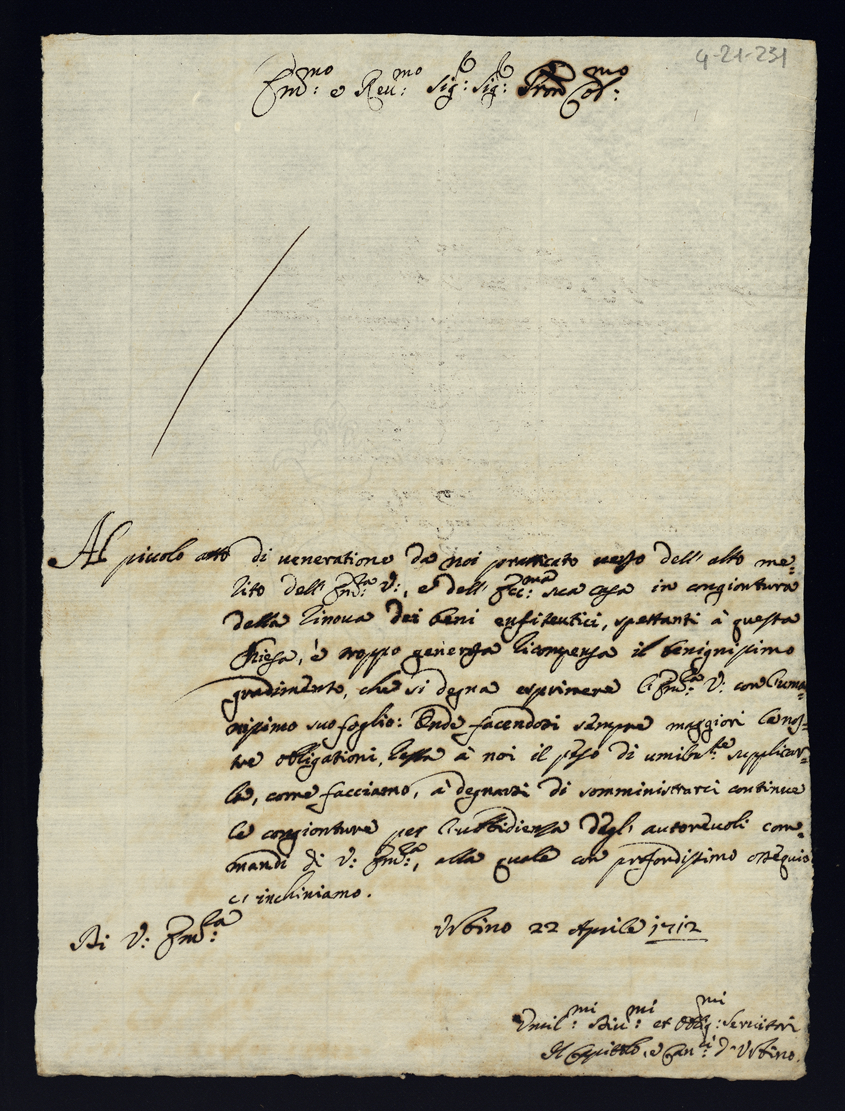 4-21-231
Em:mo e Reu:mo Sig:r Sig:r Pron Col:mo
Al piccolo atto di veneratione da noi pratticato verso dell' alto me=
rito dell' Em:za V:, e dell' Ecc:ma sua casa in congiontura
della rinova dei beni enfiteutici, spettanti à questa
Chiesa, è troppo generosa ricompensa il benignissimo
gradimento, che si degna esprimere l'Em:za V: con l'uma=
nissimo suo foglio: Onde facendosi sempre maggiori le nos=
tre obligationi, resta à noi il peso di umilm:te supplicar=
la, come facciamo, à degnarsi di somministrarci continue
le congionture per l'ubbidienza degl' autorevoli com=
mandi di V: Em:za, alla quale con profondissimo ossequio
ci inchiniamo.
Di V: Em:za
Urbino 22 Aprile 1712
Umil:mi Diu:mi et Oblig:mi Seruitori
Il Capitolo, e Can:ci d'Urbino.